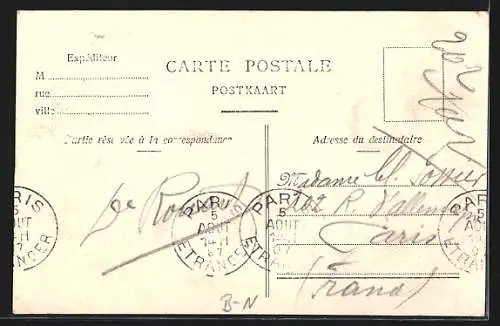 Expéditeur
M
rue
ville
CARTE POSTALE
POSTKAART
Partie réservée à la correspondance
Adresse du destinataire
Madame
202 R d'Allemagne
Paris
(France)
De
PARIS
5
AOUT
ETRANGER
PARIS
5
AOUT
ETRANGER
PARIS
5
AOUT
ETRANGER
PARIS
5
AOUT
ETRANGER
B-N